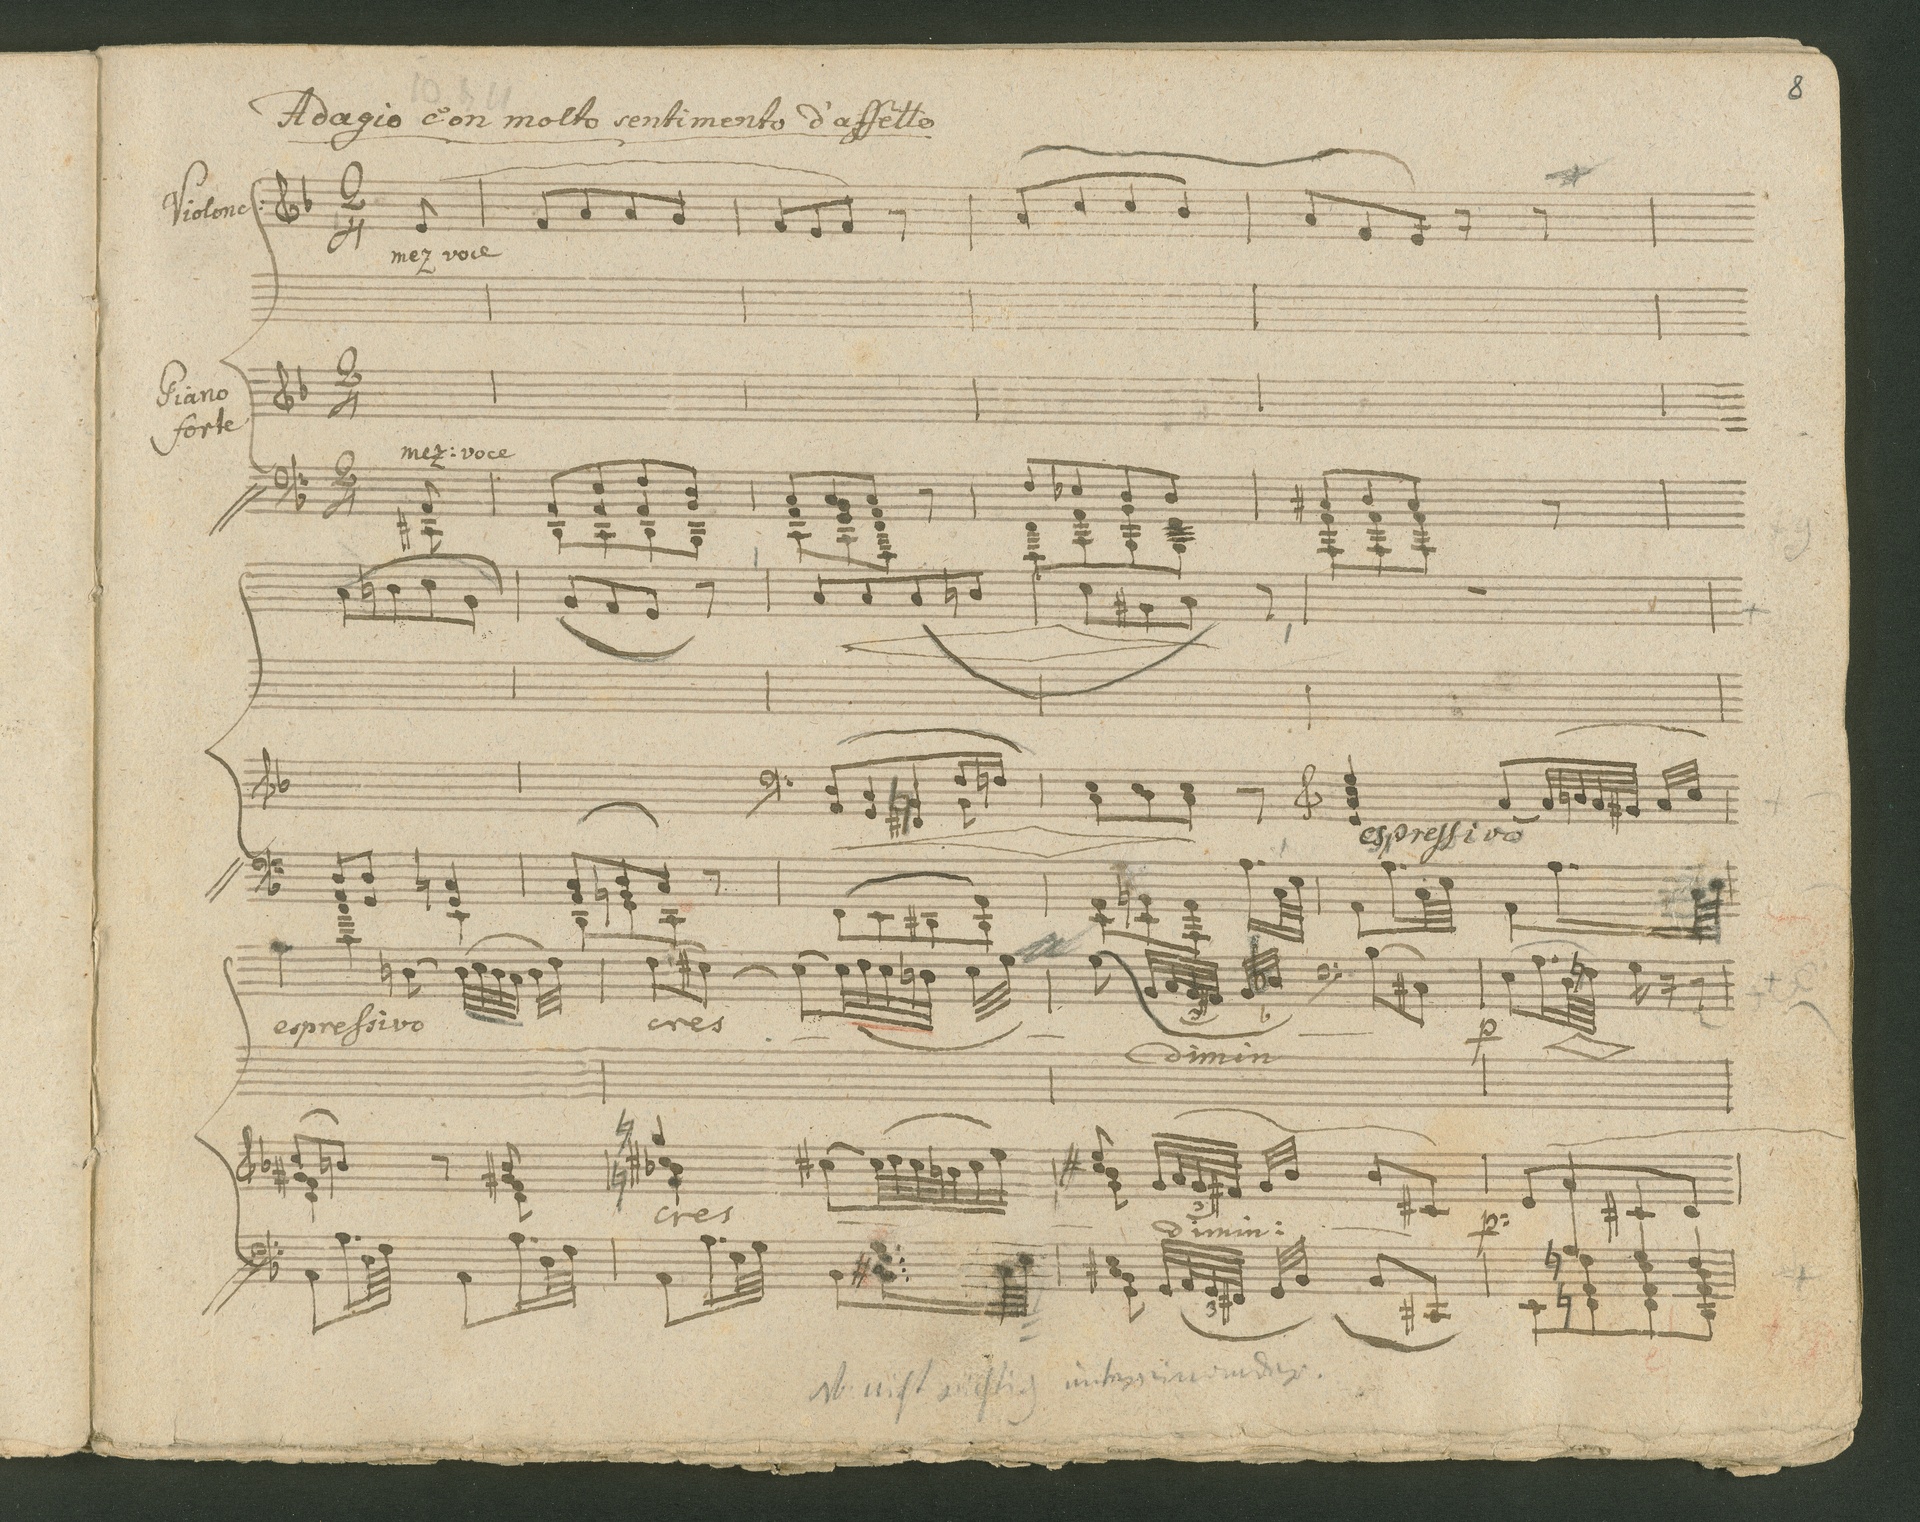 8
Adagio con molto sentimento d'affetto
Violonc:
mez voce
Piano
forte
mez: voce
espressivo
espressivo
cres
dimin
p
cres
dimin:
p:
3
3